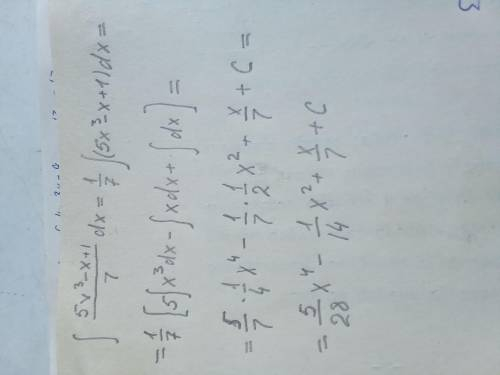 ∫ (5x³-x+1)/7 dx = 1/7 ∫(5x³-x+1)dx =
= 1/7 [5∫x³dx - ∫xdx + ∫dx] =
= 5/7 · 1/4 x⁴ - 1/7 · 1/2 x² + x/7 + C =
= 5/28 x⁴ - 1/14 x² + x/7 + C